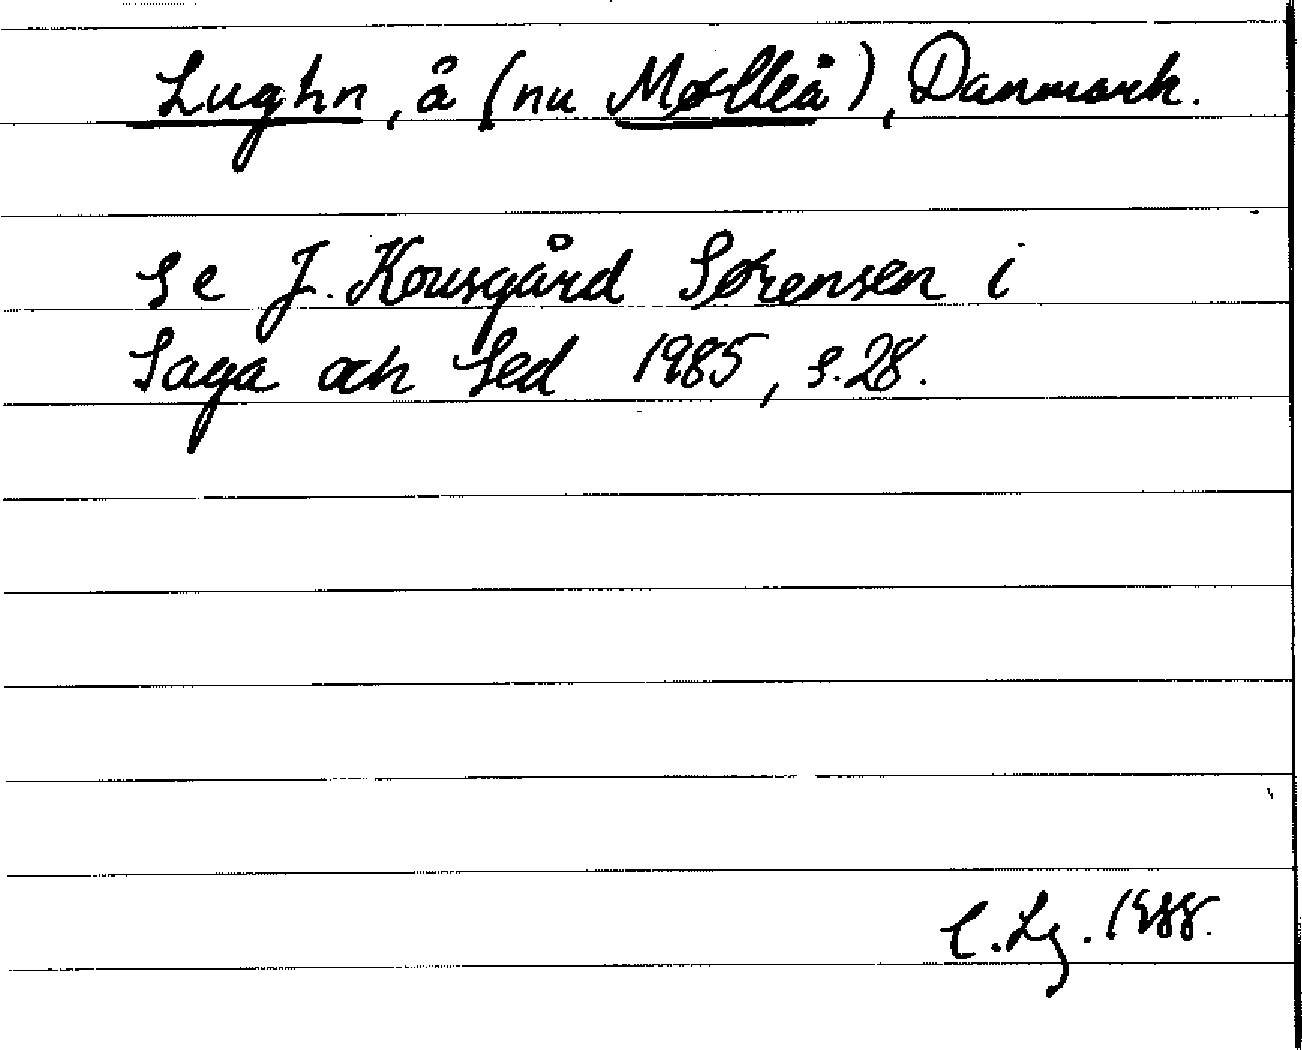 Lughn, å (nu Mølleå), Danmark.
Se J. Kousgård Sørensen i
Saga och Sed 1985, s. 28.
C. Lg. 1988.